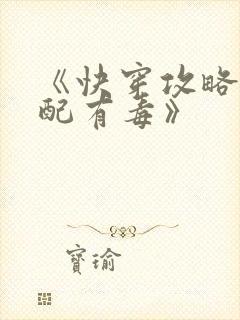 《快穿攻略
配有毒》
寳瑜